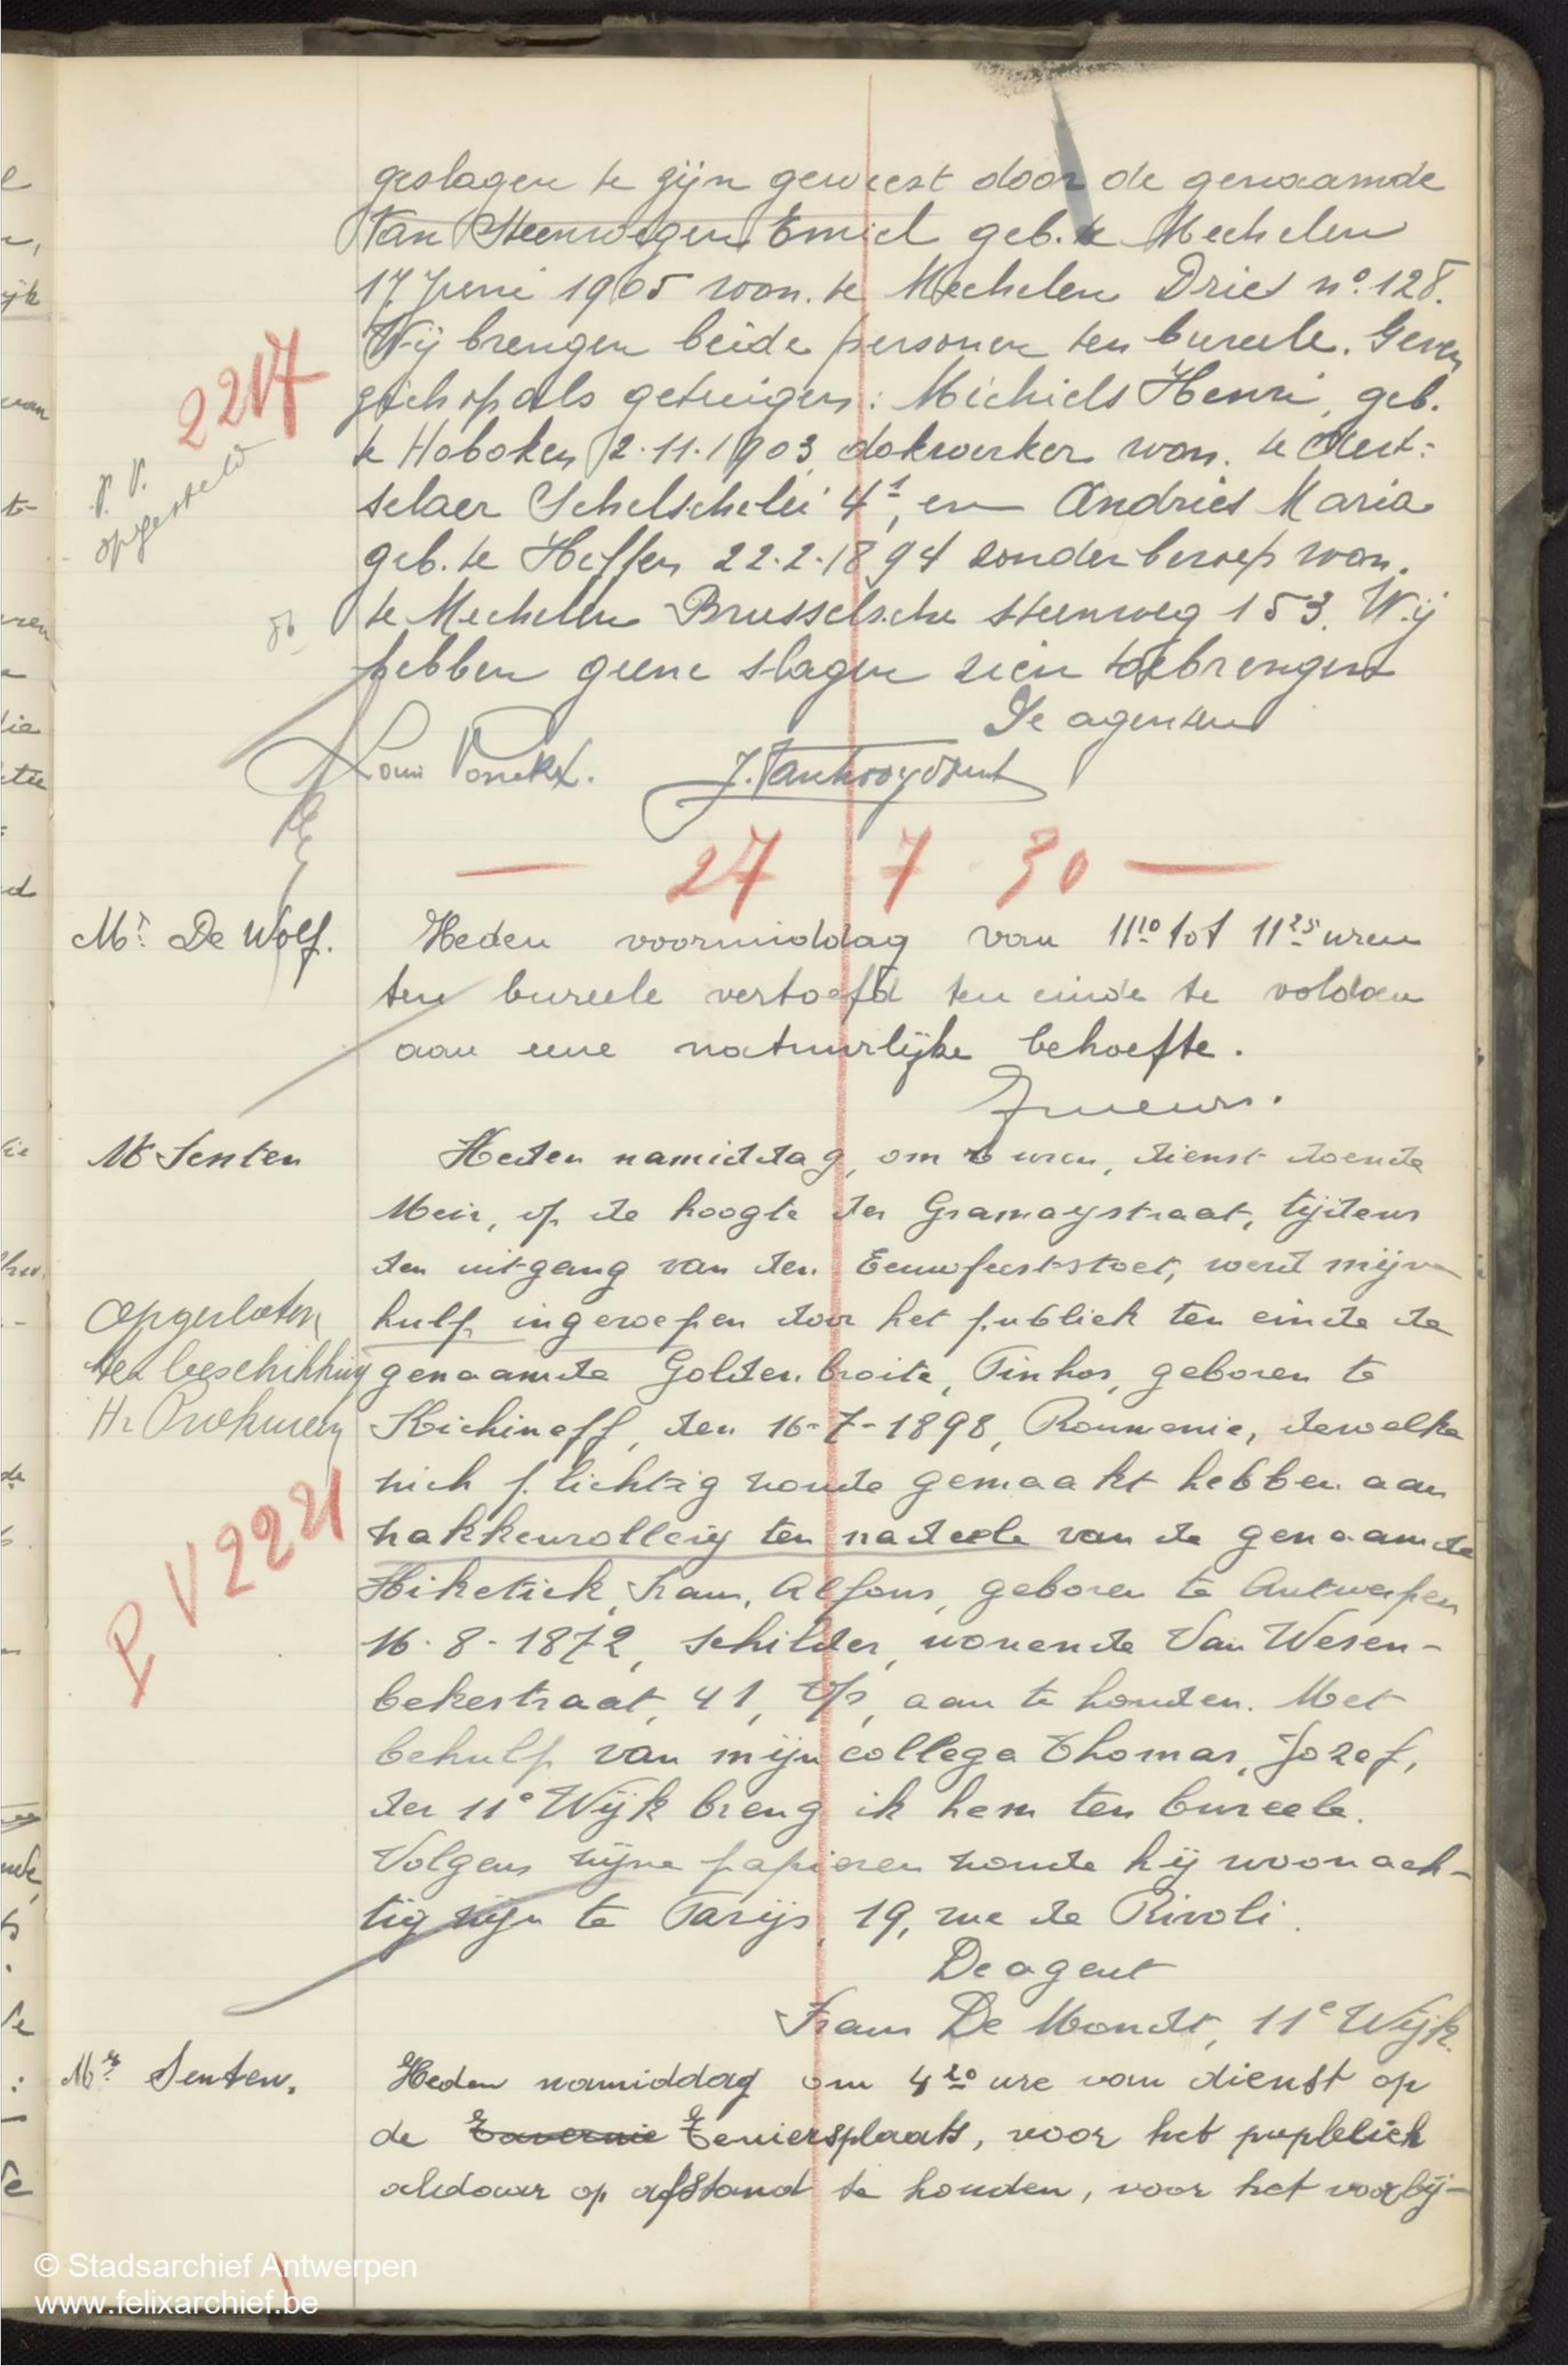 geslagen te zijn geweest door de genaamde
Van Steenwegen Emiel geb. te Mechelen
17 Juni 1905 won. te Mechelen Dries nº 128.
Wij brengen beide personen ten bureele. Geven
zich op als getuigen: Michiels Henri, geb.
te Hoboken 2.11.1903, dokwerker won. te Aert-
selaer Schelschelei 41, en Andries Maria
geb. te Heffen 22.2.1894 zonder beroep won.
te Mechelen Brusselsche steenweg 153. Wij
hebben geene slagen zien toebrengen
De agenten
2217
P.V.
opgesteld
Louis J.
— 27 7 30 —
Mr De Wolf.
Heden voormiddag van 11 10 tot 11 25 uren
ten bureele vertoefd ten einde te voldoen
aan eene natuurlijke behoefte.
Mr Senten
Heden namiddag, om uren, dienst doende
Meir, op de hoogte der Gramaystraat, tijdens
den uitgang van den Eeuwfeeststoet, werd mijn
hulp ingeroepen door het publiek ten einde de
genaamde Goldenbroite, Pinhos, geboren te
Kichineff, den 16-7-1898, Roumenie, dewelke
zich plichtig zoude gemaakt hebben aan
zakkenrollerij ten nadeele van de genaamde
Hiketick, Frans, Alfons, geboren te Antwerpen
16-8-1872, schilder, wonende Van Wesen-
bekestraat, 41, aan te houden. Met
behulp van mijn collega Thomas, Jozef,
der 11e Wijk breng ik hem ten bureele.
Volgens zijne papieren zoude hij woonach-
tig zijn te Parijs, 19, rue de Rivoli.
De agent
Frans De Mondt, 11e Wijk.
Opgesloten
ter beschikking
Hr
P V 2221
Mr Senten.
Heden namiddag om 4 20 ure van dienst op
de Tavernie Teniersplaats, voor het pupbliek
aldaar op afstand te houden, voor het voorbij-
© Stadsarchief Antwerpen
www.felixarchief.be